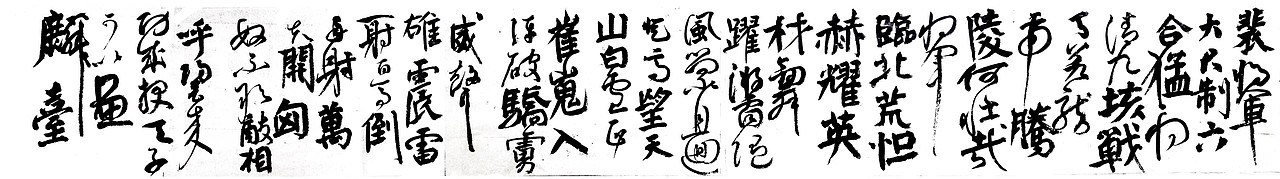 裴將軍
大君制六
合猛將
清九垓戰
馬若龍
虎騰
陵何壯哉
將軍
臨北荒恒
赫耀英
材劍舞
躍游電隨
風縈且迴
登高望天
山白雲正
崔嵬入
陣破驕虜
威聲
雄震雷
一射百馬倒
再射萬
夫開匈
奴不敢敵相
呼歸去來
功成報天子
可以畫
麟臺